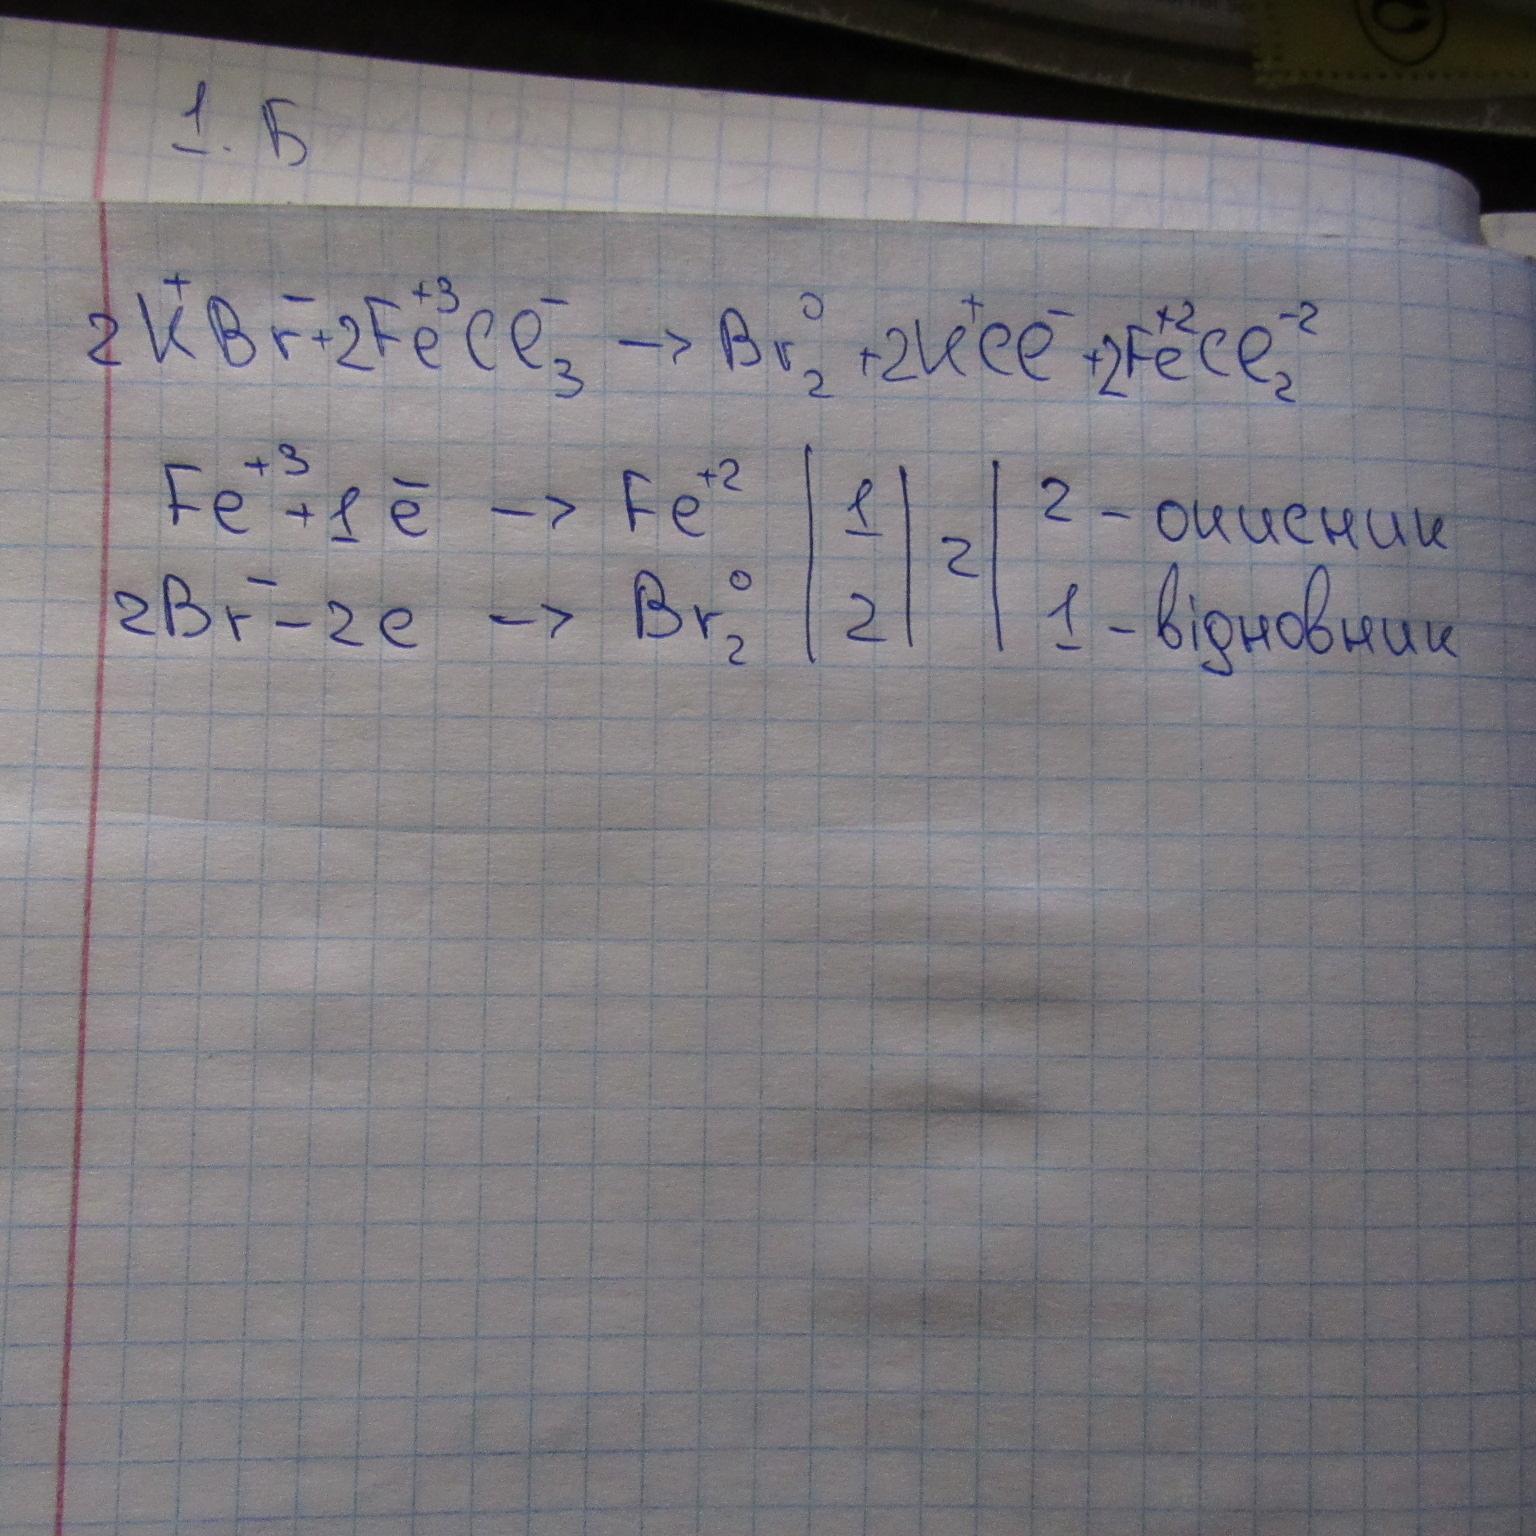 1. Б
2K⁺Br⁻+2Fe⁺³Cl₃⁻ → Br₂⁰ +2K⁺Cl⁻ +2Fe⁺²Cl₂⁻²
Fe⁺³+1ē → Fe⁺² | 1 | 2 | 2 - окисник
2Br⁻-2e → Br₂⁰ | 2 | | 1 - відновник